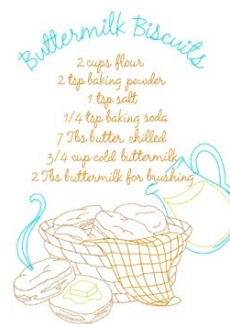 Buttermilk Biscuits
2 cups flour
2 tsp baking powder
1 tsp salt
1/4 tsp baking soda
7 Tbs butter chilled
3/4 cup cold buttermilk
2 Tbs buttermilk for brushing